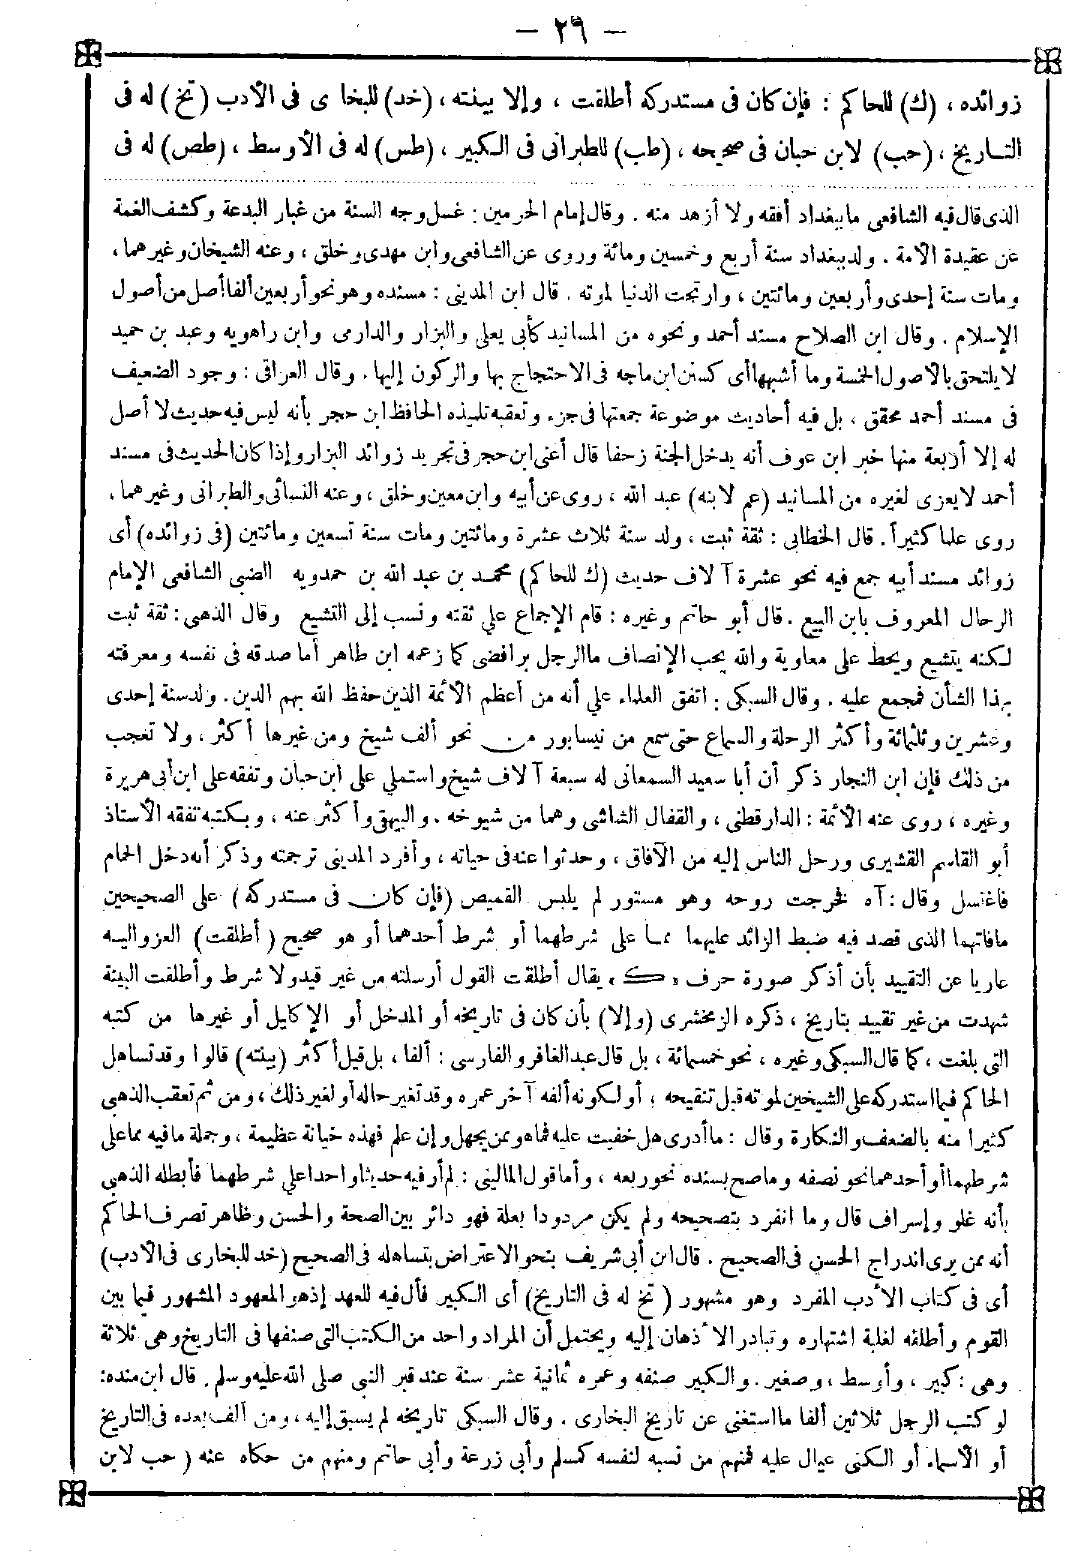 — ٢٩ —
زوائده ، (ك) للحاكم : فإن كان فى مستدركه أطلقت ، وإلا بينته ، (خد) للبخا ى فى الأدب (تخ) له فى
التاريخ ، (حب) لابن حبان فى صحيحه ، (طب) للطبرانى فى الكبير ، (طس) له فى الأوسط ، (طص) له فى
الذى قال فيه الشافعى ما ببغداد أفقه ولا أزهد منه . وقال إمام الحرمين : غسل وجه السنة من غبار البدعة وكشف الغمة
عن عقيدة الأمة . ولد ببغداد سنة أربع وخمسين ومائة وروى عن الشافعى وابن مهدى وخلق ، وعنه الشيخان وغيرهما ،
ومات سنة إحدى وأربعين ومائتين ، وارتجت الدنيا لموته . قال ابن المدينى : مسنده وهو نحو أربعين ألفا أصل من أصول
الإسلام . وقال ابن الصلاح مسند أحمد ونحوه من المسانيد كأبي يعلى والبزار والدارمى وابن راهويه وعبد بن حميد
لا يلتحق بالأصول الخمسة وما أشبهها أى كسنن ابن ماجه فى الاحتجاج بها والركون إليها . وقال العراقى : وجود الضعيف
فى مسند أحمد محقق ، بل فيه أحاديث موضوعة جمعتها فى جزء وتعقبه تلميذه الحافظ ابن حجر بأنه ليس فيه حديث لا أصل
له إلا أربعة منها خبر ابن عوف أنه يدخل الجنة زحفا قال أعنى ابن حجر فى تجريد زوائد البزار وإذا كان الحديث فى مسند
أحمد لا يعزى لغيره من المسانيد (عم لابنه) عبد الله ، روى عن أبيه وابن معين وخلق ، وعنه النسائى والطبرانى وغيرهما ،
روى علما كثيراً . قال الخطابى : ثقة ثبت ، ولد سنة ثلاث عشرة ومائتين ومات سنة تسعين ومائتين (فى زوائده) أى
زوائد مسند أبيه جمع فيه نحو عشرة آلاف حديث (ك للحاكم) محمد بن عبد الله بن حمدويه الضبى الشافعى الإمام
الرحال المعروف بابن البيع . قال أبو حاتم وغيره : قام الإجماع على ثقته ونسب إلى التشيع وقال الذهبى : ثقة ثبت
لكنه يتشيع ويحط على معاوية والله يحب الإنصاف ما الرجل برافضى كما زعمه ابن طاهر أما صدقه فى نفسه ومعرفته
بهذا الشأن فمجمع عليه . وقال السبكى : اتفق العلماء على أنه من أعظم الأئمة الذين حفظ الله بهم الدين . ولد سنة إحدى
وعشرين وثلثمائة وأكثر الرحلة والسماع حتى سمع من نيسابور من نحو ألف شيخ ومن غيرها أكثر ، ولا تعجب
من ذلك فإن ابن النجار ذكر أن أبا سعيد السمعانى له سبعة آلاف شيخ واستملى على ابن حبان وتفقه على ابن أبى هريرة
وغيره ، روى عنه الأئمة : الدارقطنى ، والقفال الشاشى وهما من شيوخه . والبيهقى وأكثر عنه ، وبكتبه تفقه الأستاذ
أبو القاسم القشيرى ورحل الناس إليه من الآفاق ، وحدثوا عنه فى حياته ، وأفرد المدينى ترجمته وذكر أنه دخل الحمام
فاغتسل وقال : آه فخرجت روحه وهو مستور لم يلبس القميص (فإن كان فى مستدركه) على الصحيحين
مافاتهما الذى قصد فيه ضبط الزائد عليهما مما على شرطهما أو شرط أحدهما أو هو صحيح (أطلقت) العزو اليه
عاريا عن التقييد بأن أذكر صورة حرف «ك» يقال أطلقت القول أرسلته من غير قيد ولا شرط وأطلقت البينة
شهدت من غير تقييد بتاريخ ، ذكره الزمخشرى (وإلا) بأن كان فى تاريخه أو المدخل أو الإكليل أو غيرها من كتبه
التى بلغت ، كما قال السبكى وغيره ، نحو خمسمائة ، بل قال عبد الغافر والفارسى : ألفا ، بل قيل أكثر (بينته) قالوا وقد تساهل
الحاكم فيما استدركه على الشيخين لموته قبل تنقيحه ؛ أو لكونه ألفه آخر عمره وقد تغير حاله أو لغير ذلك ، ومن ثم تعقب الذهبى
كثيرا منه بالضعف والنكارة وقال : ما أدرى هل خفيت عليه فما هو ممن يجهل وإن علم فهذه خيانة عظيمة ، وجملة مافيه مما على
شرطهما أو أحدهما نحو نصفه وما صح بسنده نحو ربعه ، وأما قول المالينى : لم أر فيه حديثا واحدا على شرطهما فأبطله الذهبى
بأنه غلو وإسراف قال وما انفرد بتصحيحه ولم يكن مردودا بعلة فهو دائر بين الصحة والحسن وظاهر تصرف الحاكم
أنه ممن يرى اندراج الحسن فى الصحيح . قال ابن أبى شريف بنحو الاعتراض بتساهله فى الصحيح (خد للبخارى فى الأدب)
أى فى كتاب الأدب المفرد وهو مشهور (تخ له فى التاريخ) أى الكبير فأل فيه للعهد إذ هو المعهود المشهور فيما بين
القوم وأطلقه لغلبة اشتهاره وتبادر الأذهان إليه ويحتمل أن المراد واحد من الكتب التى صنفها فى التاريخ وهى ثلاثة
وهى : كبير ، وأوسط ، وصغير . والكبير صنفه وعمره ثمانية عشر سنة عند قبر النبى صلى الله عليه وسلم . قال ابن منده :
لو كتب الرجل ثلاثين ألفا ما استغنى عن تاريخ البخارى . وقال السبكى تاريخه لم يسبق إليه ، ومن ألف بعده فى التاريخ
أو الأسماء أو الكنى عيال عليه فمنهم من نسبه لنفسه كمسلم وأبى زرعة وأبى حاتم ومنهم من حكاه عنه (حب لابن